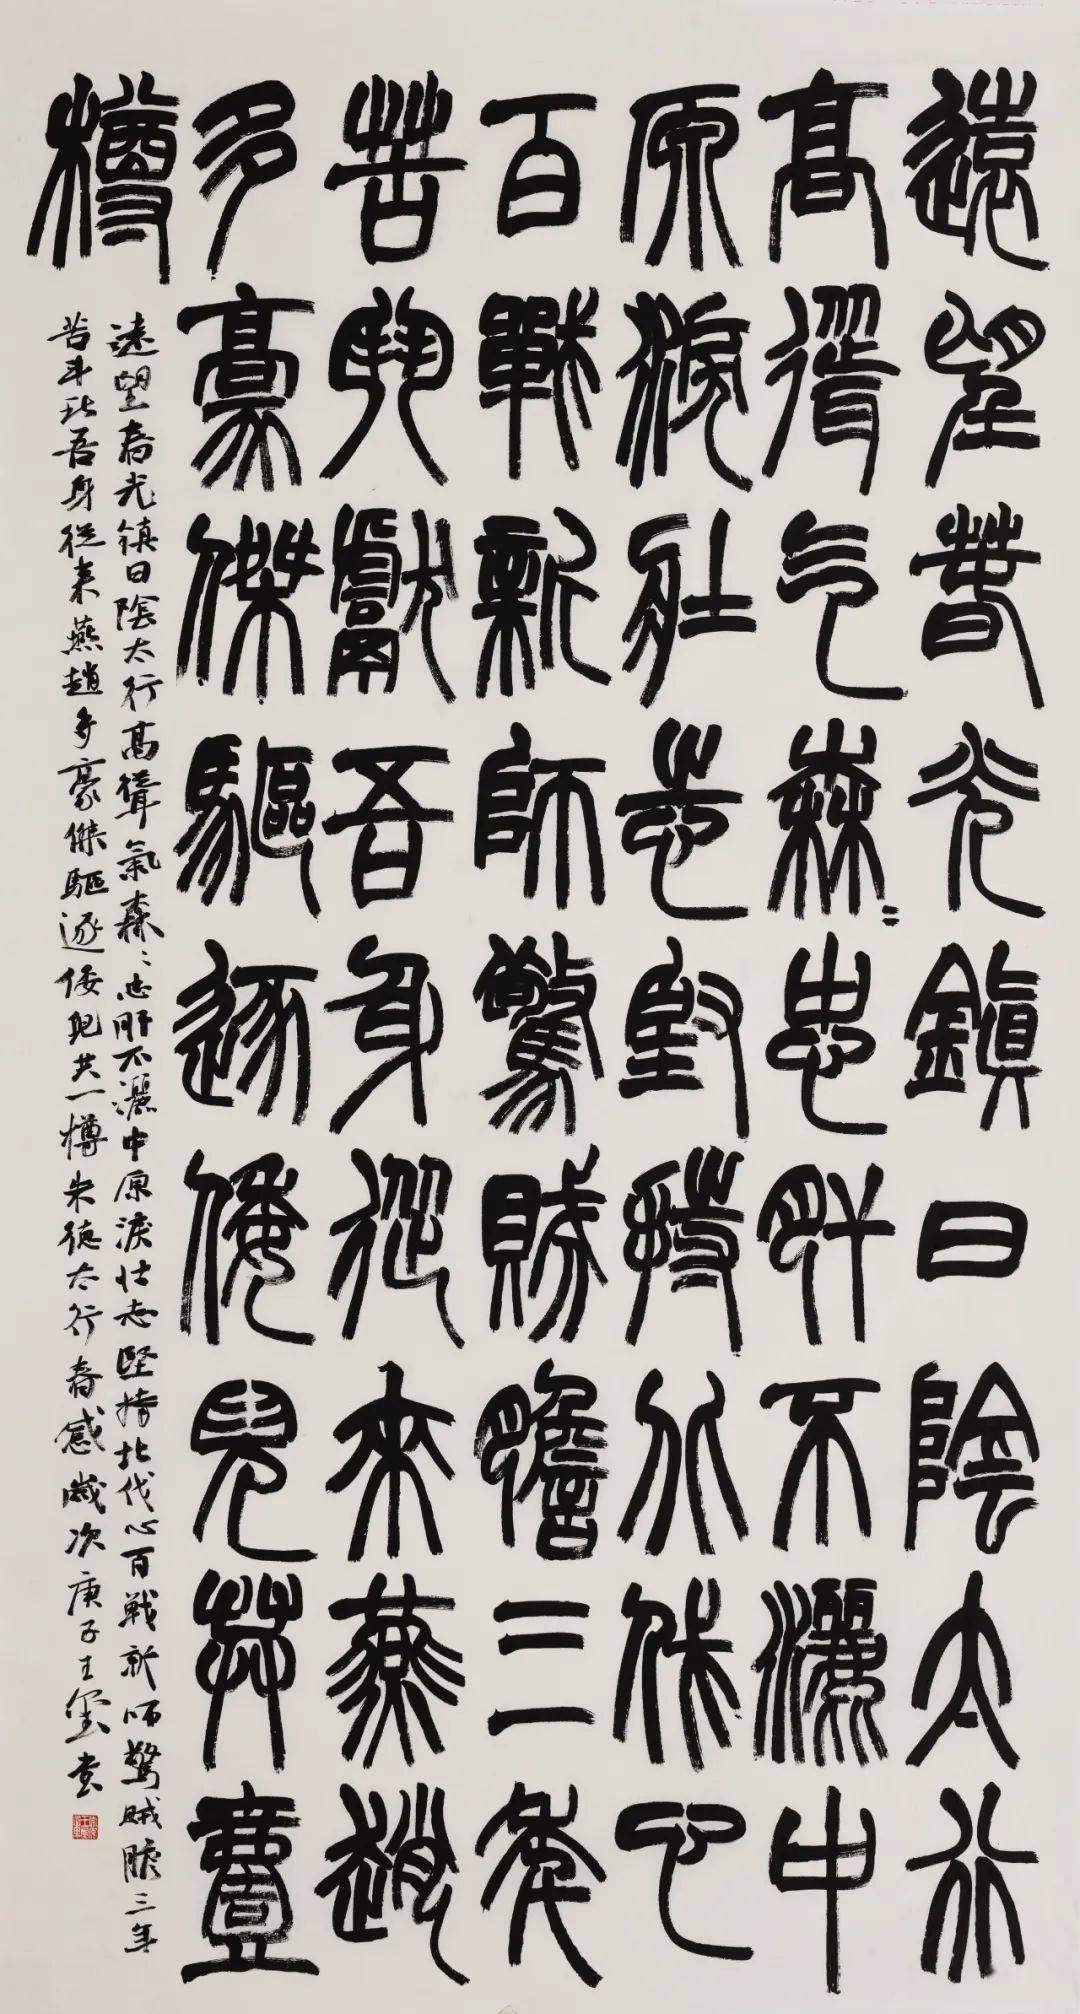 遠望春光鎮日陰太行
高聳气森〻忠肝不灑中
原淚壯志堅持北伐心
百戰新師驚賊膽三年
苦鬥獻吾身從來燕趙
多豪傑驅逐倭兒共壹
樽
遠望春光鎮日陰太行高聳氣森〻忠肝不灑中原淚壯志堅持北伐心百戰新師驚賊膽三年
苦斗吾身從来燕趙多豪傑驅逐倭兒共一樽朱德太行春感歲次庚子王書